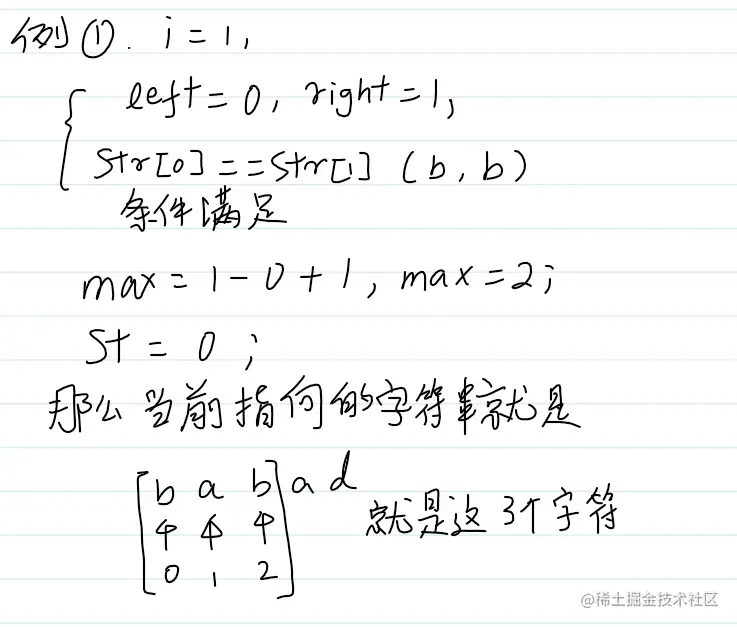 例①. i = 1,
left = 0, right = 1,
Str[0] == Str[1] (b, b)
条件满足
max = 1 - 0 + 1, max = 2;
St = 0 ;
那么当前指向的字符串就是
[b a b] a d
↑ ↑ ↑ 就是这3个字符
0 1 2
@稀土掘金技术社区